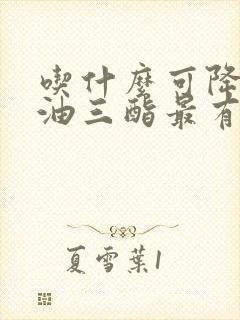 喫什麼可降
油三酯最有
夏雪葉1